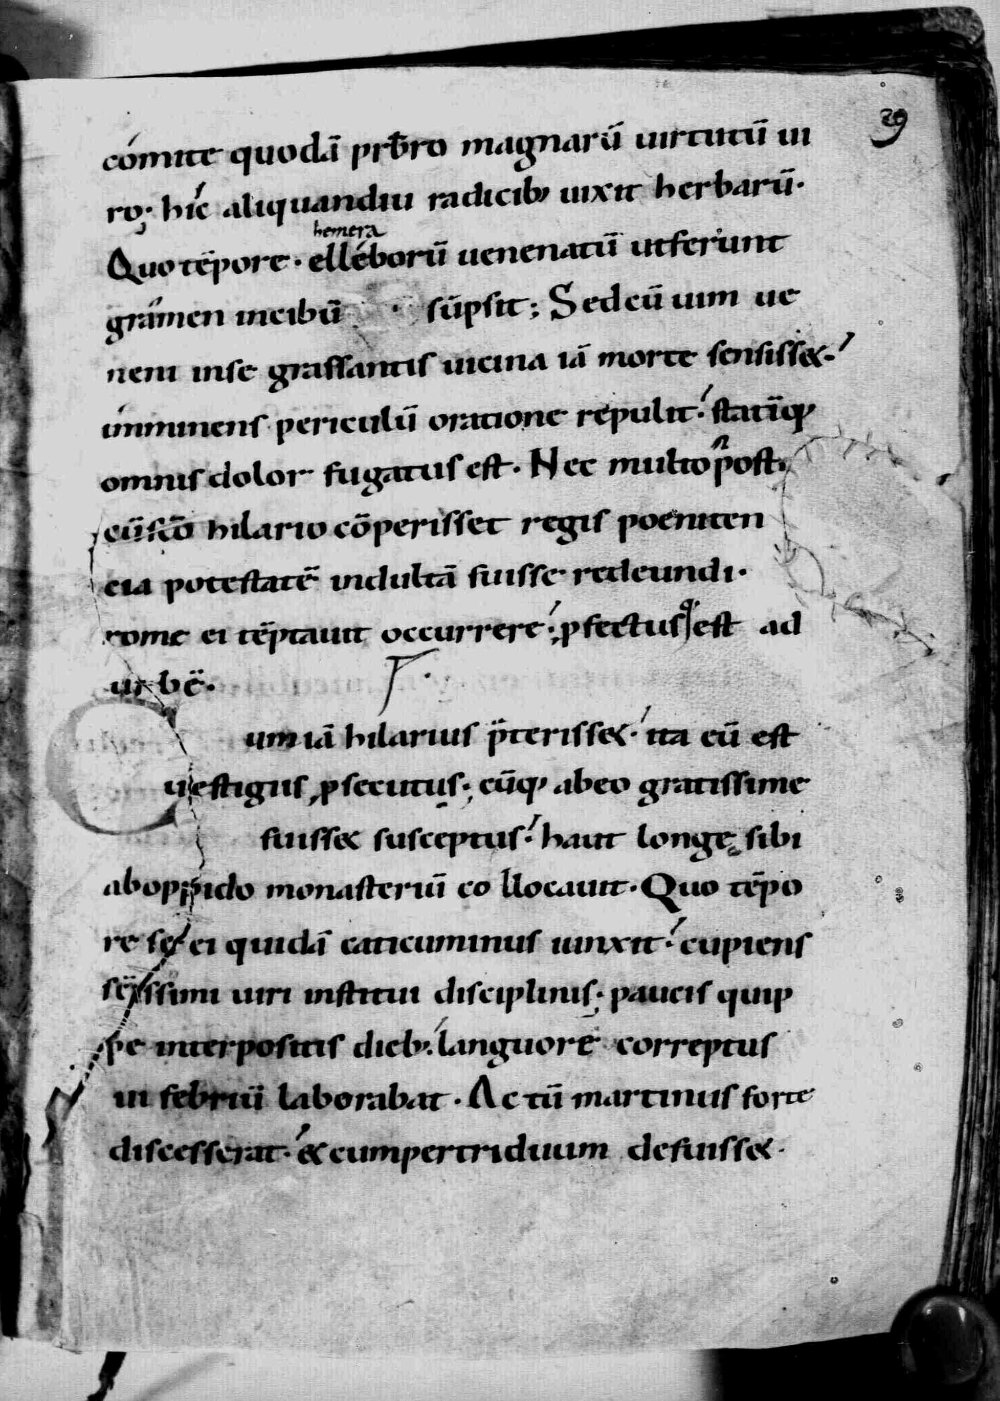 29
comite quodā prb̄ro magnarū uirtutū ui
ro; hic aliquandiu radicib; uixit herbarū.
hemera
Quo tēpore. elléborū uenenatū utferunt
gramen incibū sūpsit; Sed cū uim ue
neni inse grassantis uicina iā morte sensiss&.
imminens periculū oratione repulit. statīq;
omnis dolor fugatus est. Nec multo post
cū sc̄o hilario cōperisset regis poeniten
cia potestatē indultā fuisse redeundi.
rome ei tēptauit occurrere. ꝓfectusq; est ad
urbē.
Cum iā hilarius p̄teriss&. ita eū est
uestigiis ꝓsecutus. cūq; abeo gratissime
fuiss& susceptus. haut longe sibi
aboppido monasteriū collocauit. Quo tēpo
re se ei quidā caticuminus iunxit. cupiens
sc̄issimi uiri institui disciplinis. paucis quip
pe interpositis dieb; languore correptus
ui febriū laborabat. Ac tū martinus forte
discesserat. & cumpertriduum defuiss&.